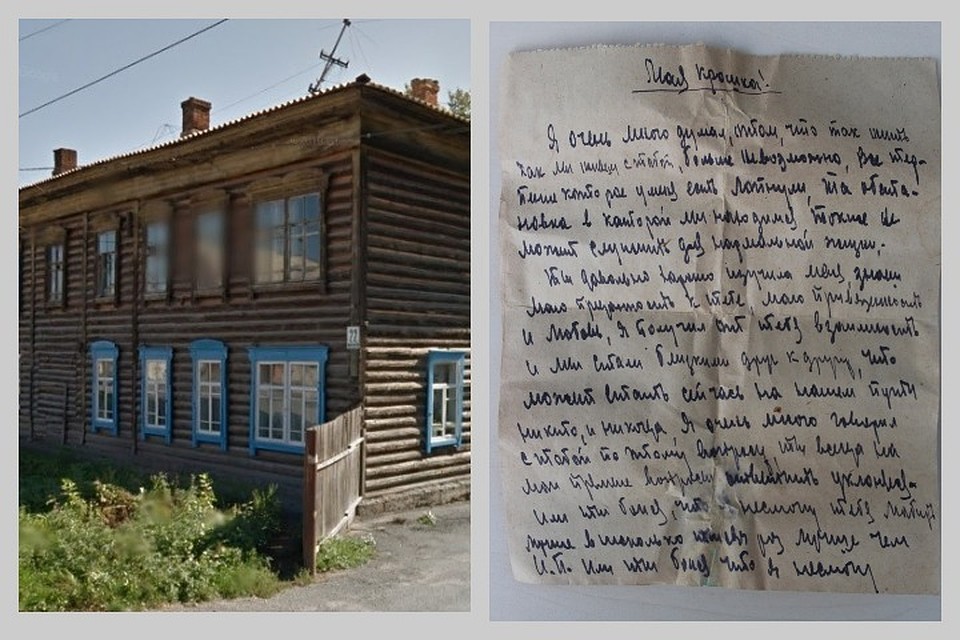 22
Моя крошка!
Я очень много думал, о том, что так жить
как мы живем с тобой, больше невозможно, все тер-
пение которое у меня есть лопнули, та обста-
новка в которой мы находимся, тоже не
может служить для нормальной жизни.
Ты довольно хорошо изучила меня, знаешь
мою преданность к тебе, мою привязанность
и любовь, я получил от тебя взаимность
и мы стали близкими друг к другу, что
может встать сейчас на нашем пути
никто, и никогда. Я очень много говорил
с тобой по этому вопросу ты всегда на
мои прямые вопросы уклонялась.
Или ты боишь, что я несмогу тебя любить
лучше в несколько раз лучше чем
И.П. Или ты боишь что я несмогу